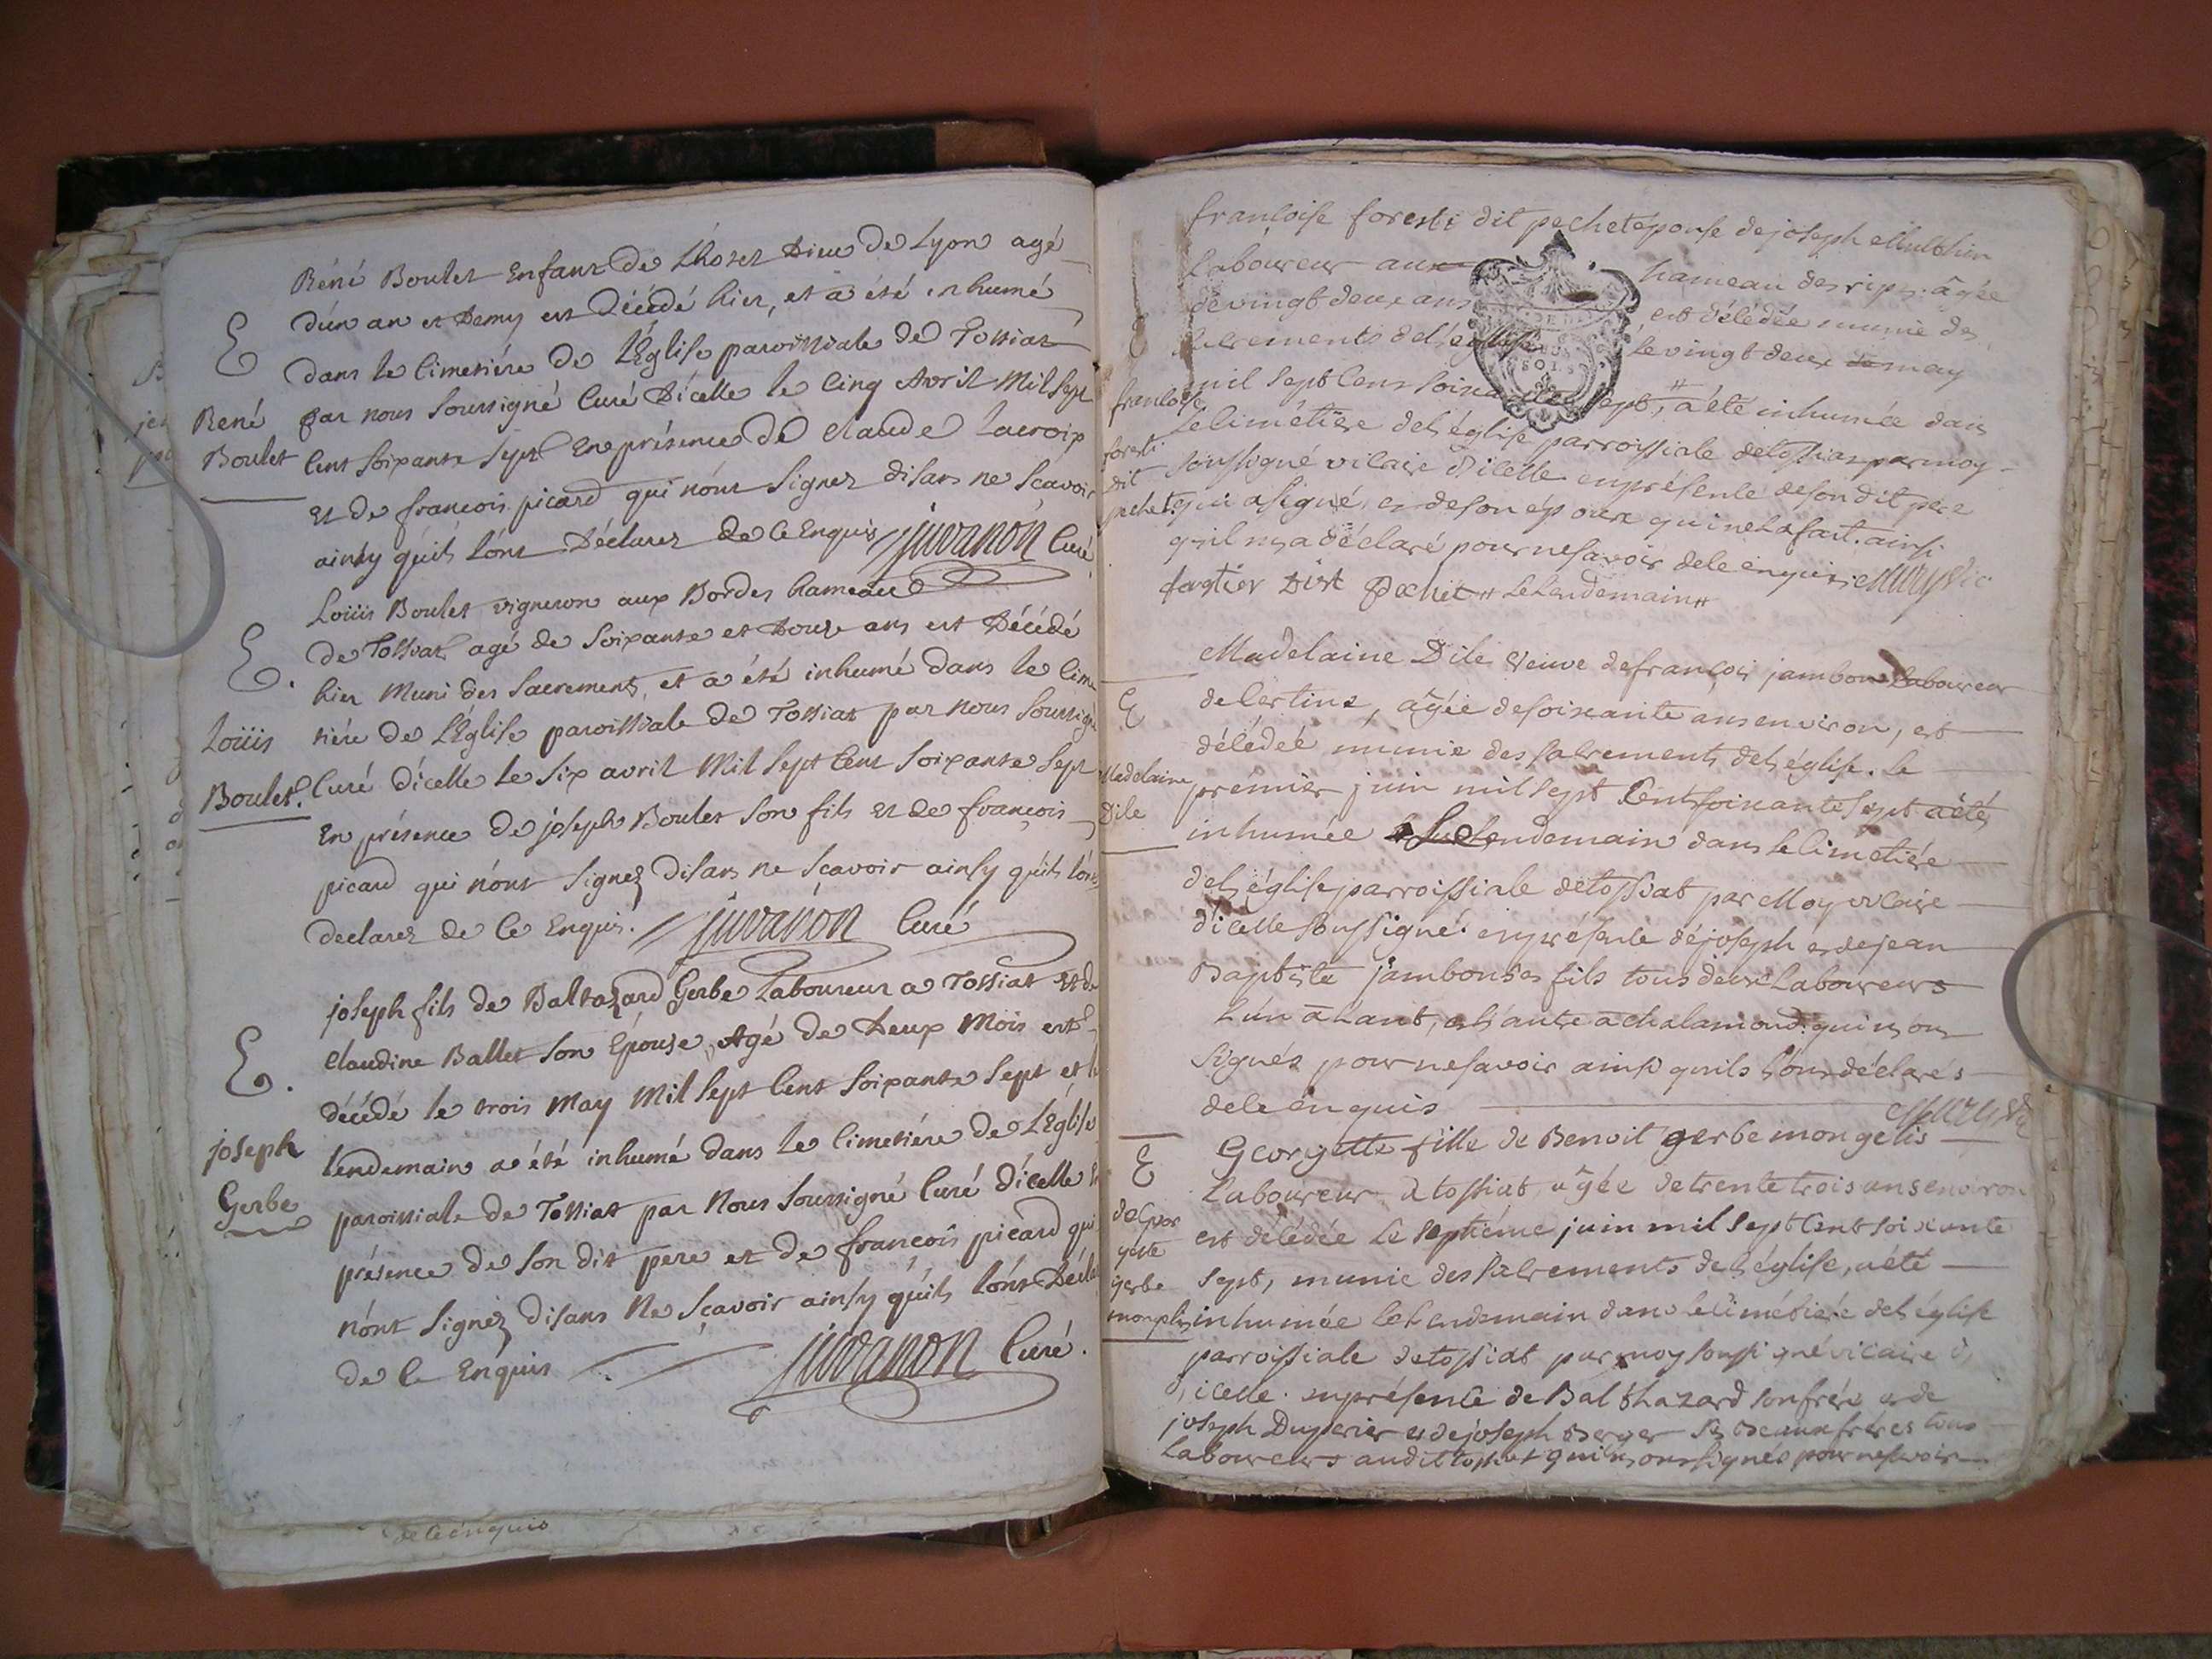 Réné Boulet Enfant De L'hotel Dieu De Lyon agé
E
d'un an et Demy est Décédé hier, et a été inhumé
dans le Cimetiére De L'Église paroissiale De Tossiat
René
Boulet
par nous soussigné Curé D'icelle le Cinq Avril Mil Sept
Cent Soixante Sept En présence De Claude Lacroix
Et De francois picard qui n'ont Signez disans ne Sçavoir
ainsy qu'ils l'ont Déclarez de Ce Enquis juvanon Curé
Loüis Boulet vigneron aux Bordes hameau
E.
De Tossiat agé de Soixante et Douze ans est Décédé
hier Muni des Sacrements, et a été inhumé dans le Cime
Loüis
Boulet.
tiére De L'Église paroissiale De Tossiat par nous Soussigné
Curé d'icelle le Six avril Mil Sept Cent Soixante Sept
En présence De joseph Boulet Son fils Et De françois
picard qui n'ont Signez Disans ne Scavoir ainsy qu'ils l'ont
declarez de Ce Enquis. juvanon Curé
joseph fils de Baltazard Gerbe Laboureur a Tossiat Et de
E.
Claudine Ballet Son Épouse, Agé De Deux Mois est
décédé le trois May Mil Sept Cent Soixante Sept et le
joseph
Gerbe
lendemain a été inhumé dans le Cimetiére De L'Église
paroissiale De Tossiat par Nous Soussigné Curé d'icelle En
présence De Son dit pere et De francois picard qui
n'ont Signéz disans Ne Sçavoir ainsy qu'ils l'ont Décla
de Ce Enquis juvanon Curé.
de Ce enquis
françoise foresti dit pechet épouse de joseph
Laboureur aux hameau des rips. agée
E
de vingt deux ans est décédée munie des
sacrements de l'église le vingt deux de may
françoise
foresti
dit
pechet
mil sept cens soixante sept, # a été inhumée dans
le cimétière de l'église parroissiale de tossiat par moy
soussigné vicaire d'icelle en présence de son dit pere
qui a signé, et de son époux qui ne la fait. ainsi
qu'il m'a déclaré pour ne savoir de ce enquis Mury vic
Dist Pechet # le lendemain #
Madelaine Dile Veuve de françois jambon Laboureur
E
de Certine, agée de soixante ans environ, est
décédée munie des sacrements de l'église. le
Madelaine
Dile
premier juin mil sept Cent soixante sept a été
inhumée Le lendemain dans le cimetiére
de l'église parroissiale de tossiat par Moy vicaire
d'icelle soussigné. en présence de joseph et de jean
Baptiste jambon ses fils tous deux Laboureurs
l'un a Lant, et l'autre a chalamond. qui n'ont
signés pour ne savoir ainsi qu'ils l'ont déclarés
de ce enquis Mury vic
Georgette fille de Benoit gerbe mongelis
E
Laboureur a tossiat, agée de trente trois ans environ
est décédée le septiéme juin mil sept Cent soixante
gerbe
sept, munie des sacrements de l'église, a été
inhumée le lendemain dans le cimétiere de l'église
parroissiale de tossiat par moy soussigné vicaire d'
d'icelle. en présence de Balthazard son frére et de
joseph Duperier et de joseph Berger ses Beaux fréres tous
Laboureurs audit tossiat qui n'ont signés pour ne savoir